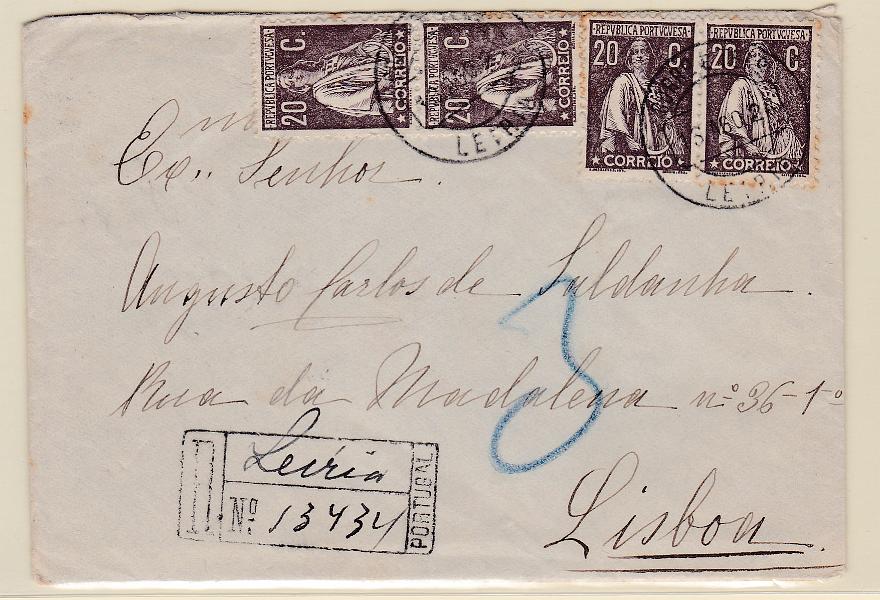 REPVBLICA PORTVGVESA
20 C.
CORREIO
REPVBLICA PORTVGVESA
20 C.
CORREIO
REPVBLICA PORTVGVESA
20 C.
CORREIO
REPVBLICA PORTVGVESA
20 C.
CORREIO
LEIRIA
LEIRIA
Exmo Senhor.
Augusto Carlos de Saldanha.
Rua da Madalena nº 36-1º
3
R Leiria
Nº 13434
PORTUGAL
Lisboa.